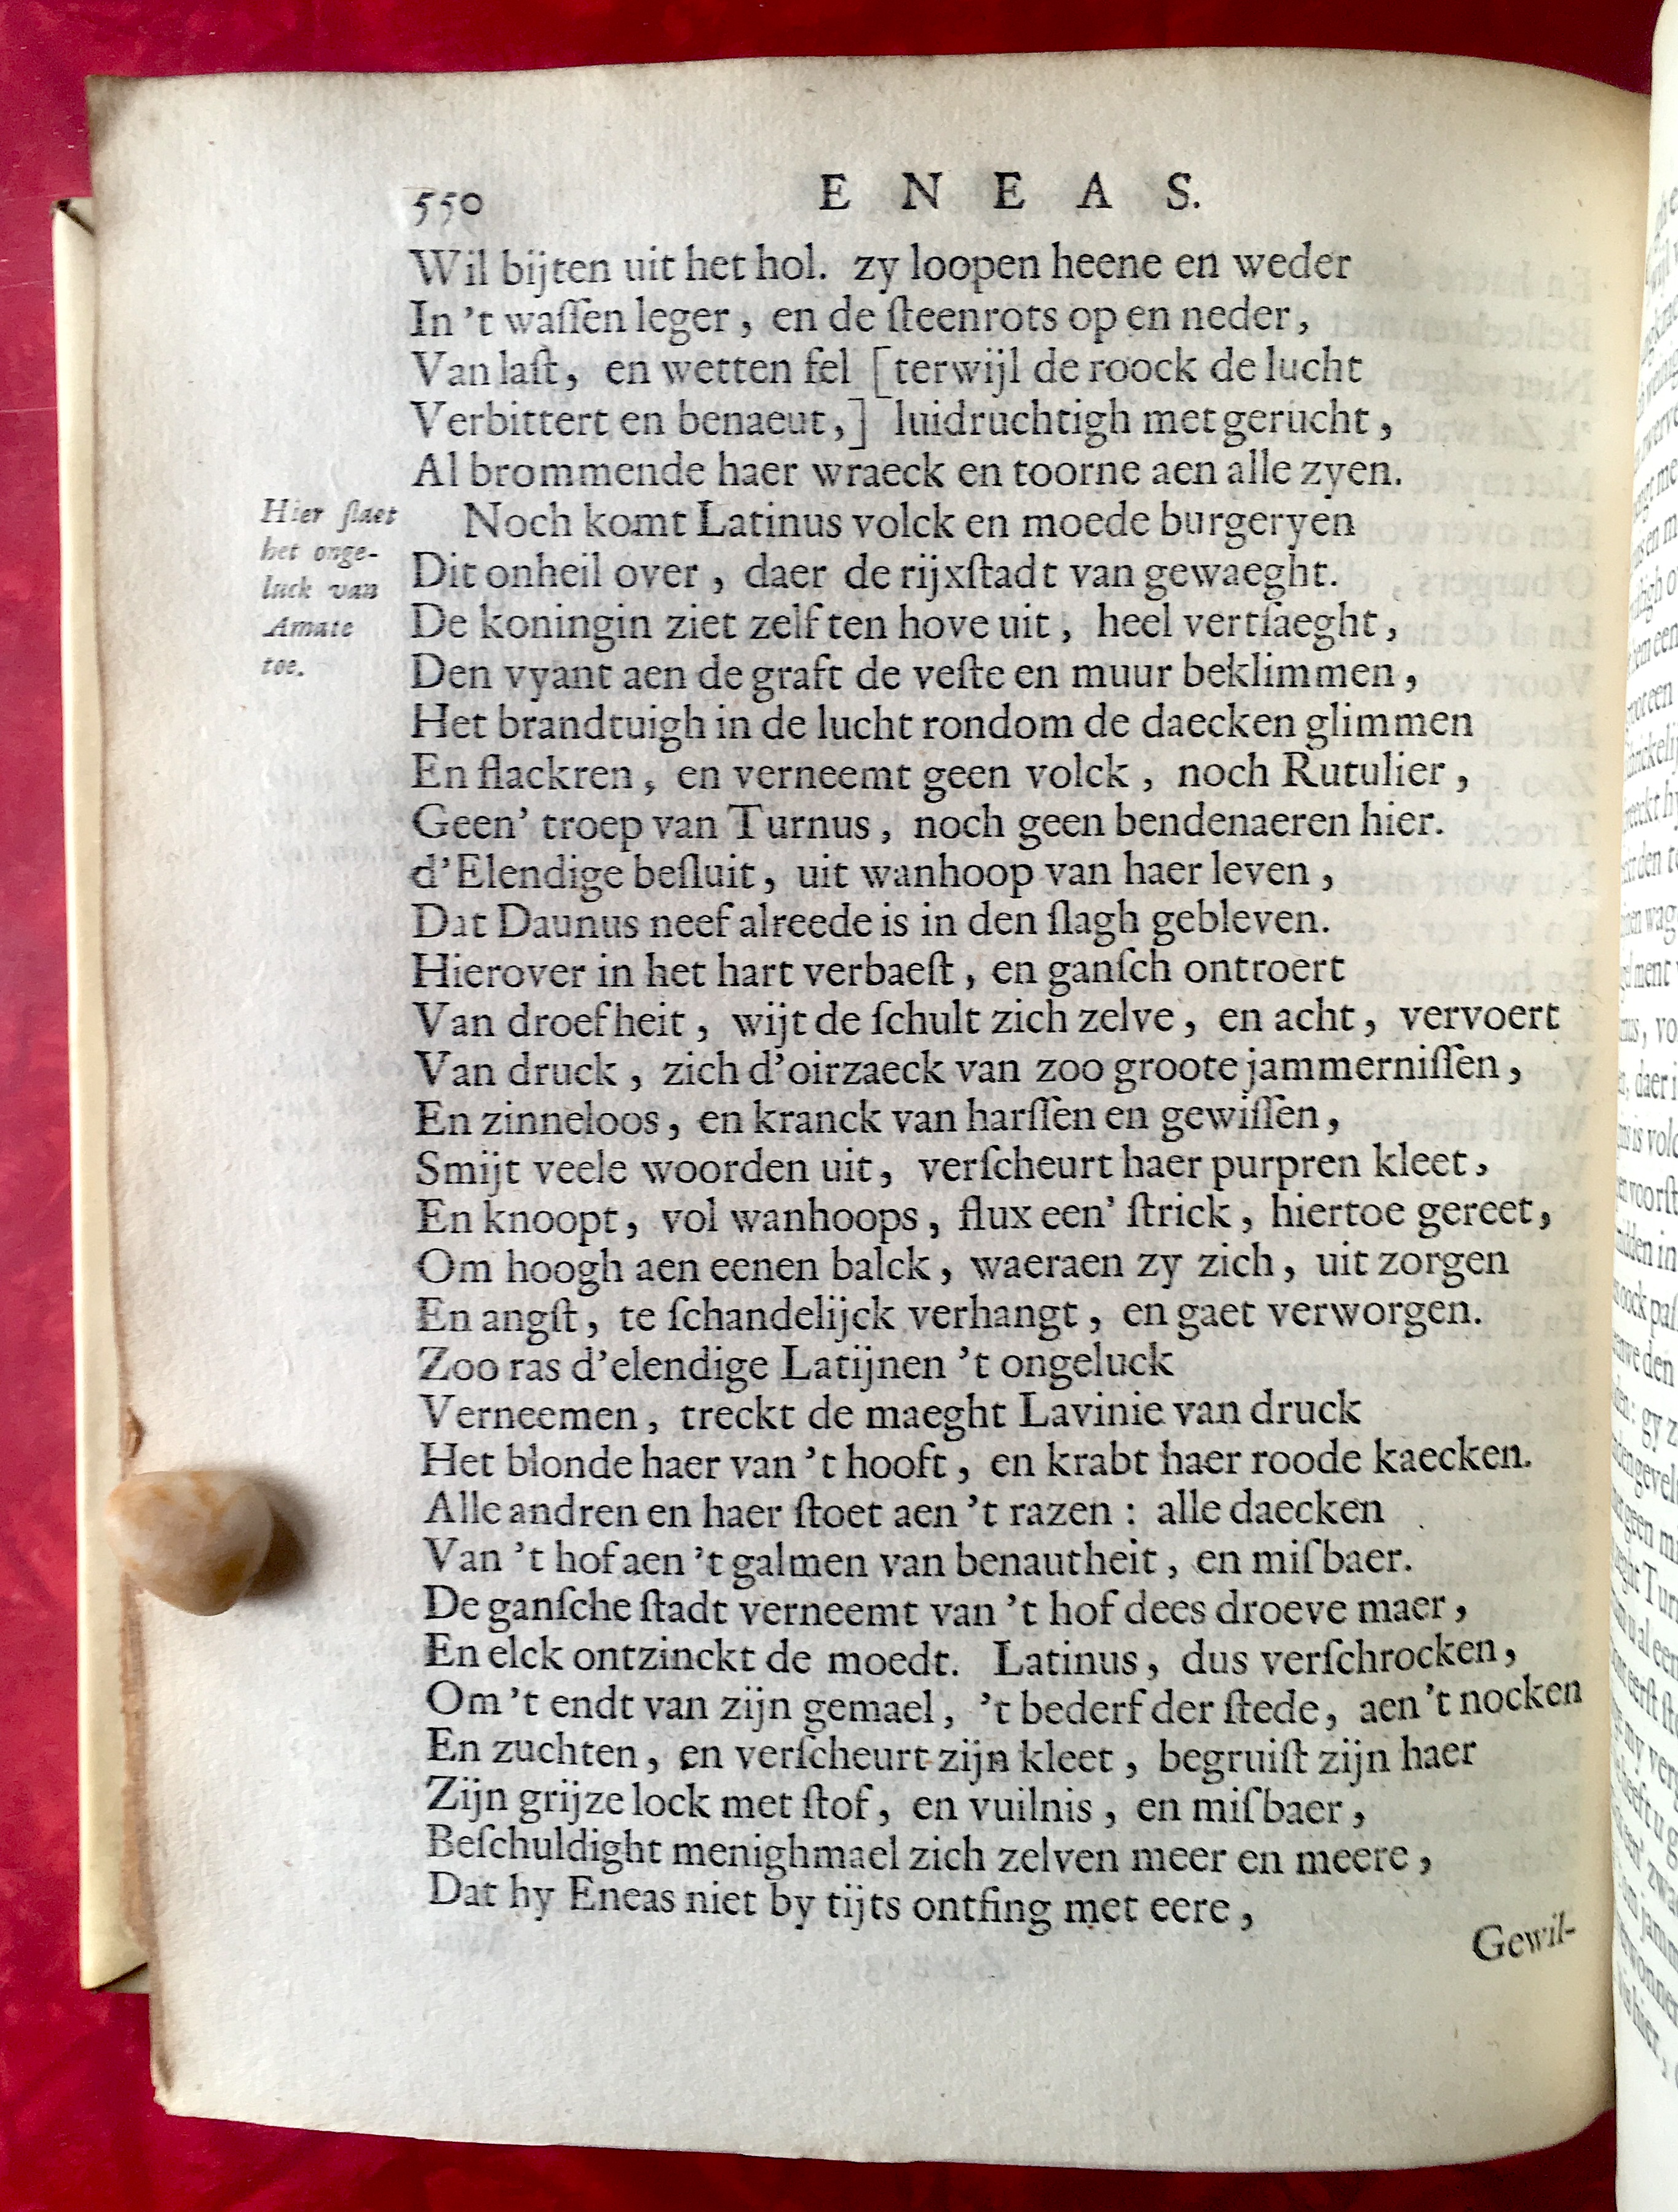 550
E N E A S.
Wil bijten uit het hol. zy loopen heene en weder
In 't waſſen leger, en de ſteenrots op en neder,
Van laſt, en wetten fel [terwijl de roock de lucht
Verbittert en benaeut,] luidruchtigh met gerucht,
Al brommende haer wraeck en toorne aen alle zyen.
Hier ſlaet
het onge-
luck van
Amate
toe.
Noch komt Latinus volck en moede burgeryen
Dit onheil over, daer de rijxſtadt van gewaeght.
De koningin ziet zelf ten hove uit, heel vertſaeght,
Den vyant aen de graft de veſte en muur beklimmen,
Het brandtuigh in de lucht rondom de daecken glimmen
En flackren, en verneemt geen volck, noch Rutulier,
Geen' troep van Turnus, noch geen bendenaeren hier.
d'Elendige beſluit, uit wanhoop van haer leven,
Dat Daunus neef alreede is in den ſlagh gebleven.
Hierover in het hart verbaeſt, en ganſch ontroert
Van droefheit, wijt de ſchult zich zelve, en acht, vervoert
Van druck, zich d'oirzaeck van zoo groote jammerniſſen,
En zinneloos, en kranck van harſſen en gewiſſen,
Smijt veele woorden uit, verſcheurt haer purpren kleet,
En knoopt, vol wanhoops, flux een' ſtrick, hiertoe gereet,
Om hoogh aen eenen balck, waeraen zy zich, uit zorgen
En angſt, te ſchandelijck verhangt, en gaet verworgen.
Zoo ras d'elendige Latijnen 't ongeluck
Verneemen, treckt de maeght Lavinie van druck
Het blonde haer van 't hooft, en krabt haer roode kaecken.
Alle andren en haer ſtoet aen 't razen: alle daecken
Van 't hof aen 't galmen van benautheit, en miſbaer.
De ganſche ſtadt verneemt van 't hof dees droeve maer,
En elck ontzinckt de moedt. Latinus, dus verſchrocken,
Om 't endt van zijn gemael, 't bederf der ſtede, aen 't nocken
En zuchten, en verſcheurt zijn kleet, begruiſt zijn haer
Zijn grijze lock met ſtof, en vuilnis, en miſbaer,
Beſchuldight menighmael zich zelven meer en meere,
Dat hy Eneas niet by tijts ontfing met eere,
Gewil-